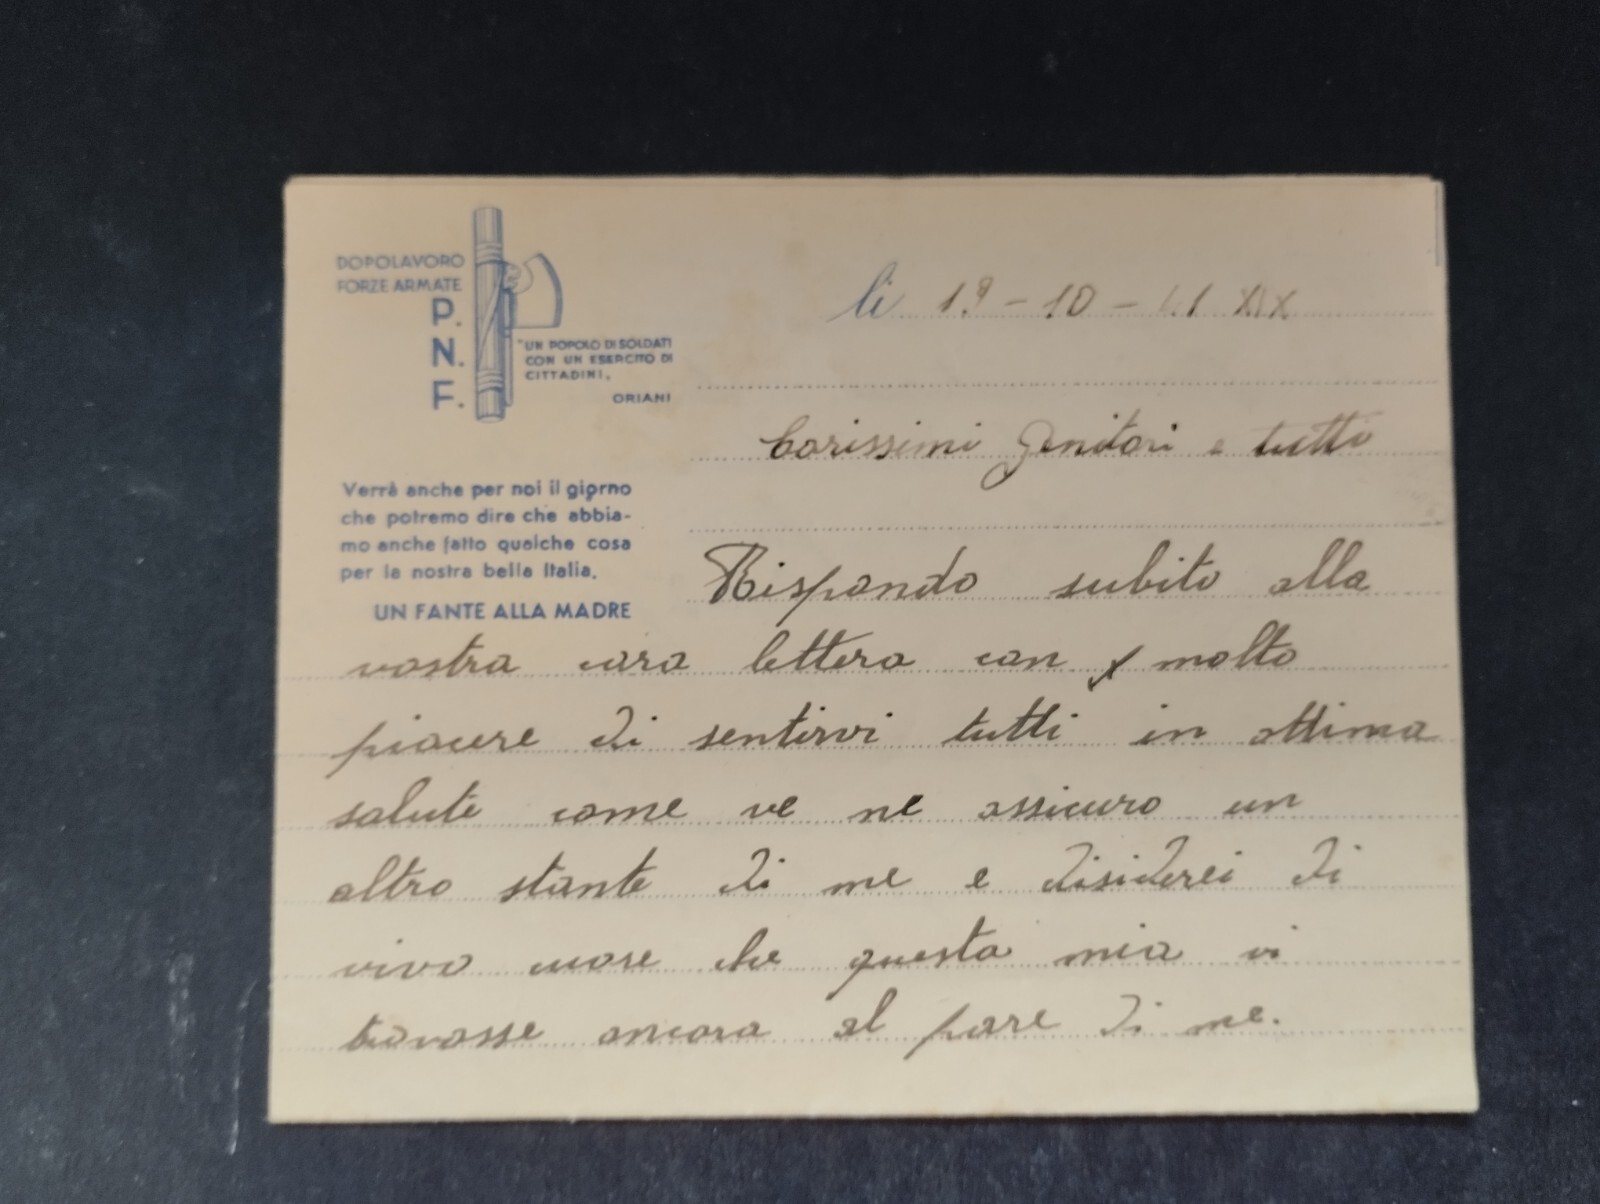 DOPOLAVORO
FORZE ARMATE
P.
N.
F.
"UN POPOLO DI SOLDATI
CON UN ESERCITO DI
CITTADINI,
ORIANI
lì 19-10-41 XIX
Carissimi Genitori e tutti
Verrà anche per noi il giorno
che potremo dire che abbia-
mo anche fatto qualche cosa
per la nostra bella Italia.
UN FANTE ALLA MADRE
Rispondo subito alla
vostra cara lettera con molto
piacere di sentirvi tutti in ottima
salute come ve ne assicuro un
altro stante di me e disiderei di
vivo cuore che questa mia vi
trovasse ancora al pare di me.